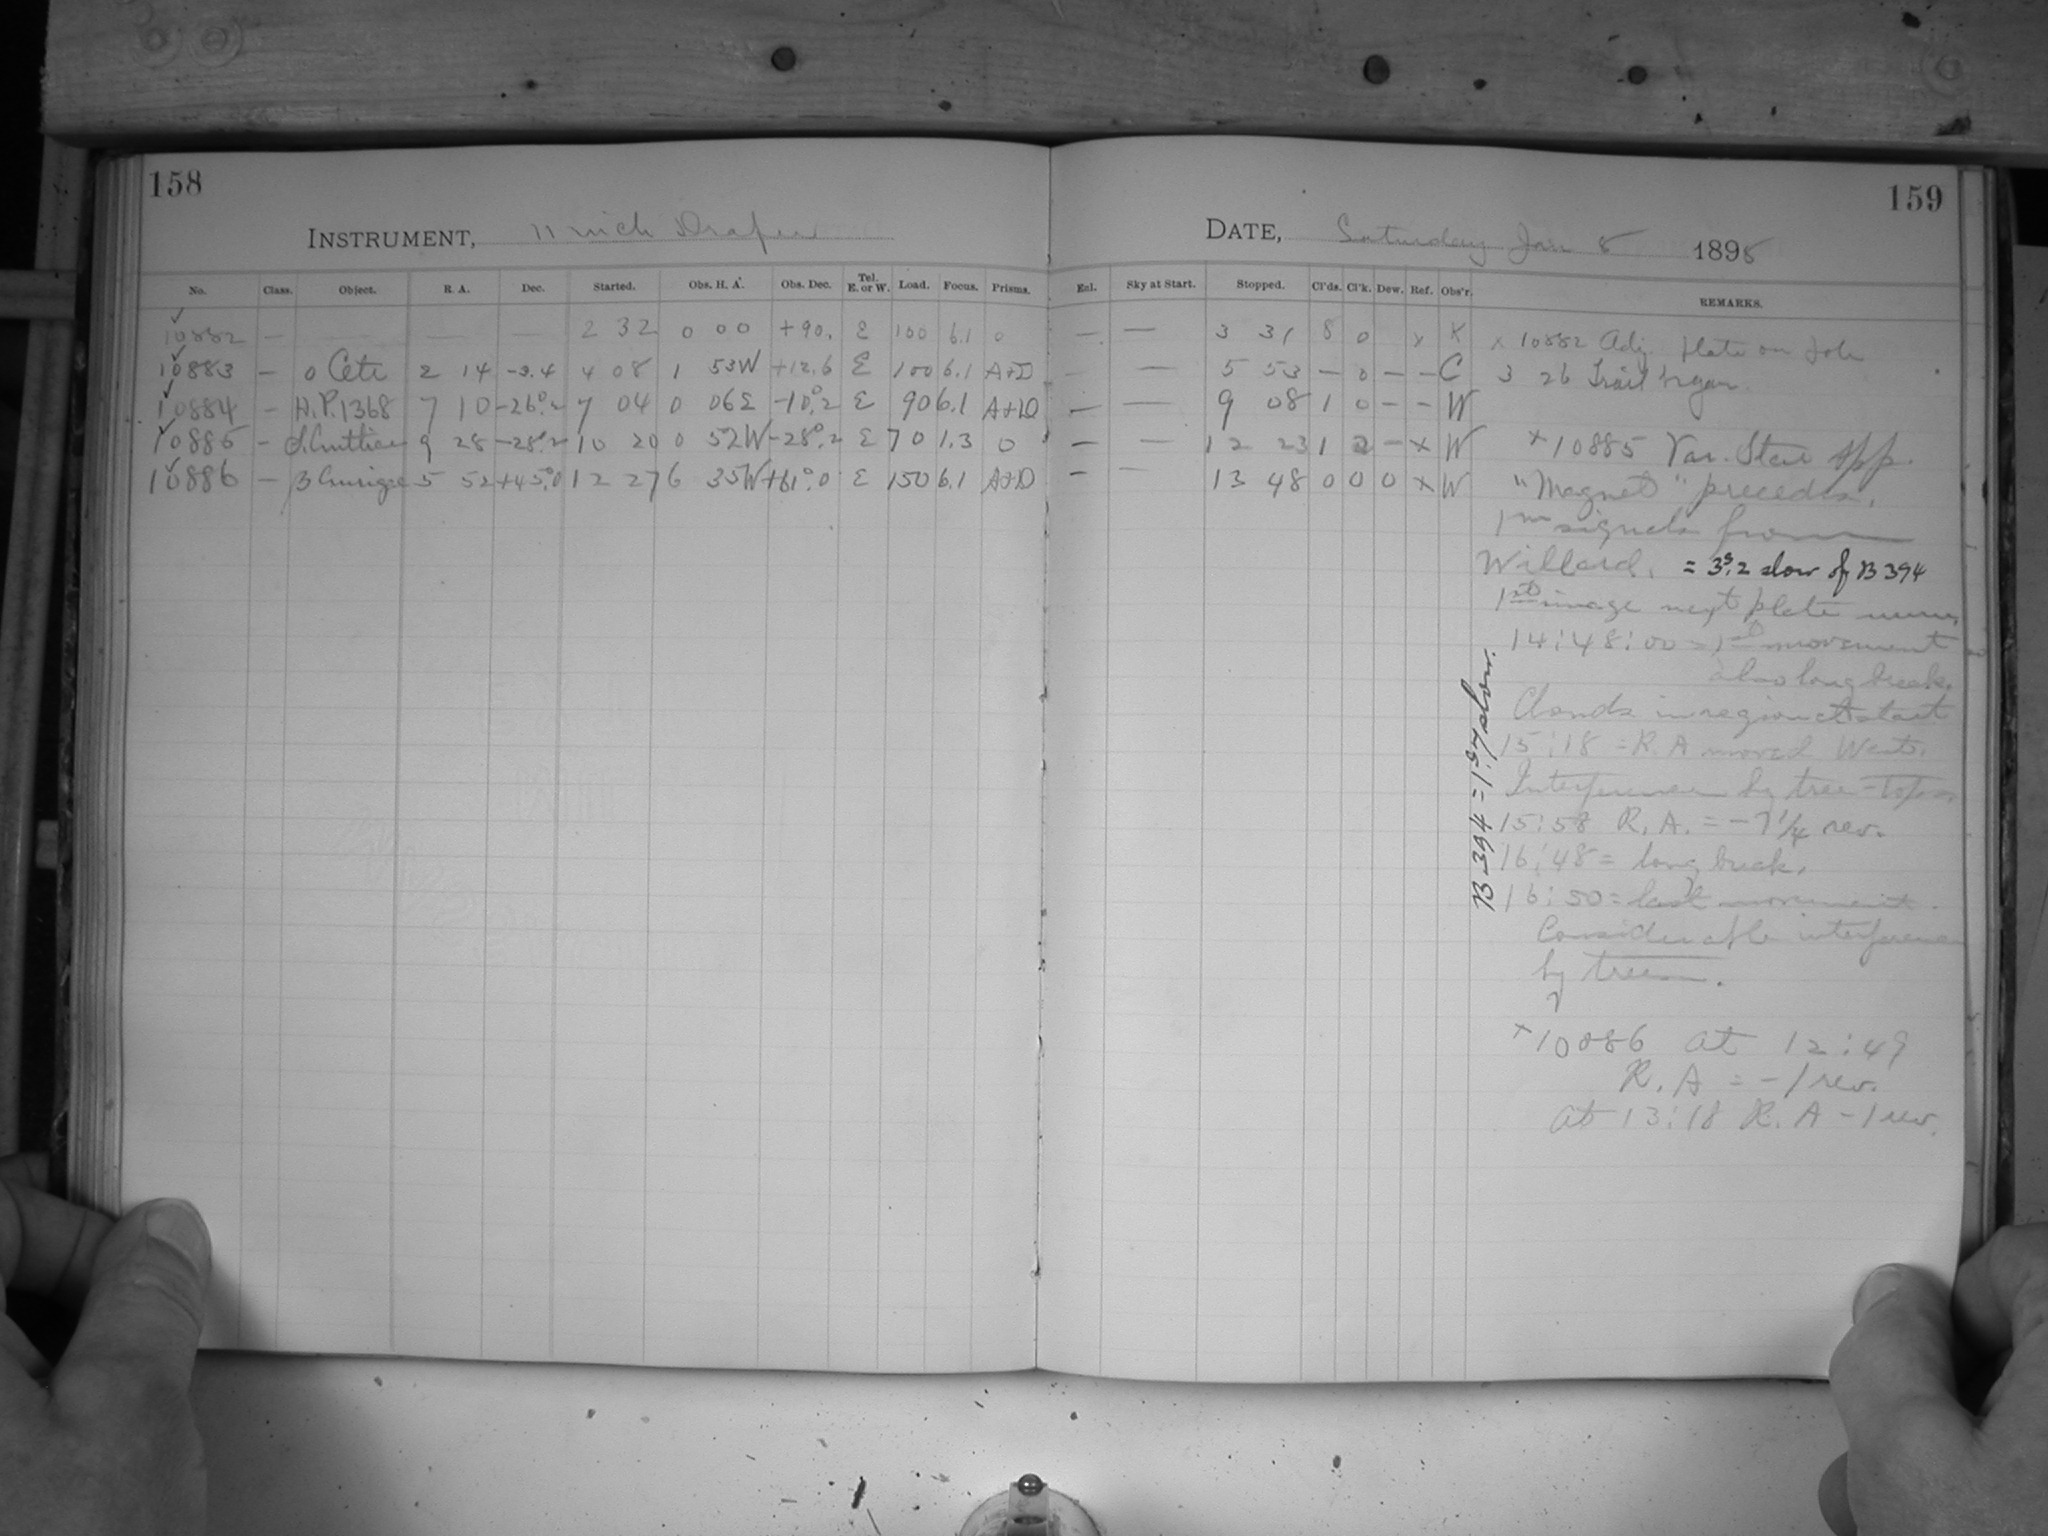 158
INSTRUMENT, 11 inch Draper
No. Class. Object. R. A. Dec. Started. Obs. H. A. Obs. Dec. Tel. E. or W. Load. Focus. Prisms.
10882 — — — 2 32 0 00 +90. E 100 6.1 0
10883 — o Ceti 2 14 -3.4 4 08 1 53W +12.6 E 100 6.1 A+D
10884 — H.P.1368 7 10 -26°.2 7 04 0 06E -10°.2 E 90 6.1 A+D
10885 — 9 28 -28°.2 10 20 0 52W -28°.2 E 70 1.3 0
10886 — β Aurigae 5 52 +45°.0 12 27 6 35W +61°.0 E 150 6.1 A+D
159
DATE, Saturday Jan 8 1898
Exl. Sky at Start. Stopped. Cl'ds. Cl'k. Dew. Ref. Obs'r. REMARKS.
— — 3 31 8 0 x K x 10882 Adj. plate on Pole
— — 5 53 — 0 — — C 3 26 Trail began
— — 9 08 1 0 — — W
— — 12 23 1 2 — x W x10885 Var. Star App.
— — 13 48 0 0 0 x W "Magnet" precedes,
1m signals from
Willard. = 3s.2 slow of B 394
1st image next plate
14:48:00 = 1st movement
also long break.
Clouds in region at start
15:18 = R.A moved West.
Interference by tree-tops
15:58 R.A. = -7 1/4 rev.
16:48 = long break.
16:50 = last movement.
Considerable interference
by trees.
x10886 at 12:49
R.A = -1 rev.
at 13:18 R.A -1 rev.
B 394 = 1s.7 slow.